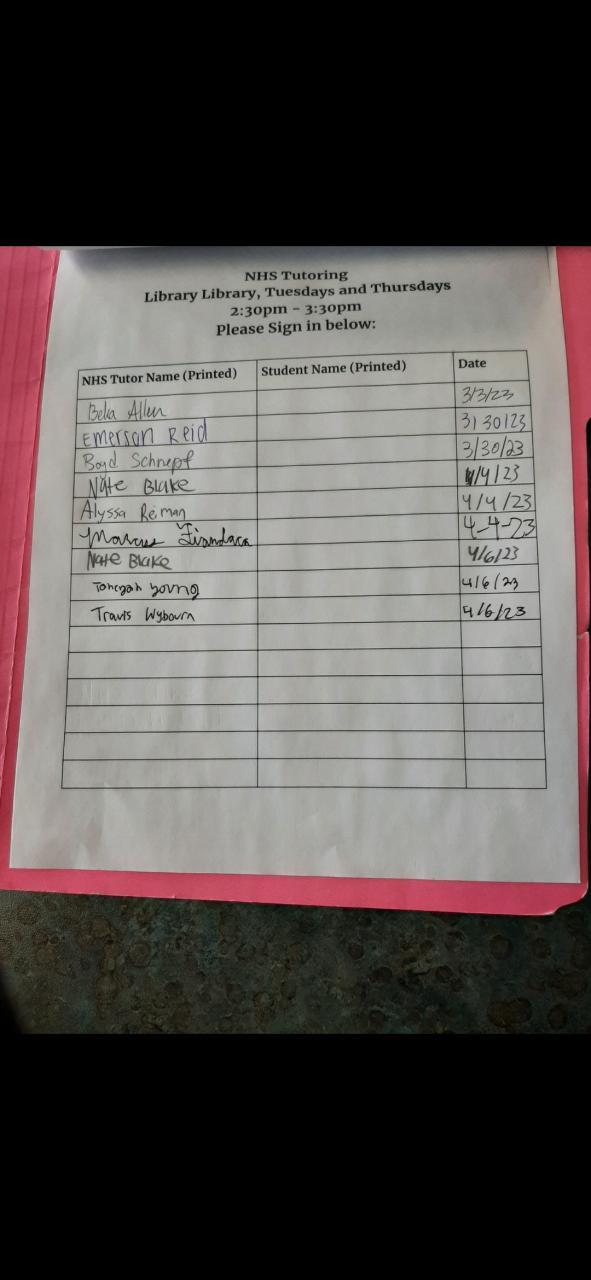 NHS Tutoring
Library Library, Tuesdays and Thursdays
2:30pm - 3:30pm
Please Sign in below:
NHS Tutor Name (Printed) Student Name (Printed) Date
Bela Allen 3/3/23
Emerson Reid 3/30/23
Boyd Schnepf 3/30/23
Nate Blake 4/4/23
Alyssa Reiman 4/4/23
Marcus 4-4-23
Nate Blake 4/6/23
young 4/6/23
Travis Wybourn 4/6/23